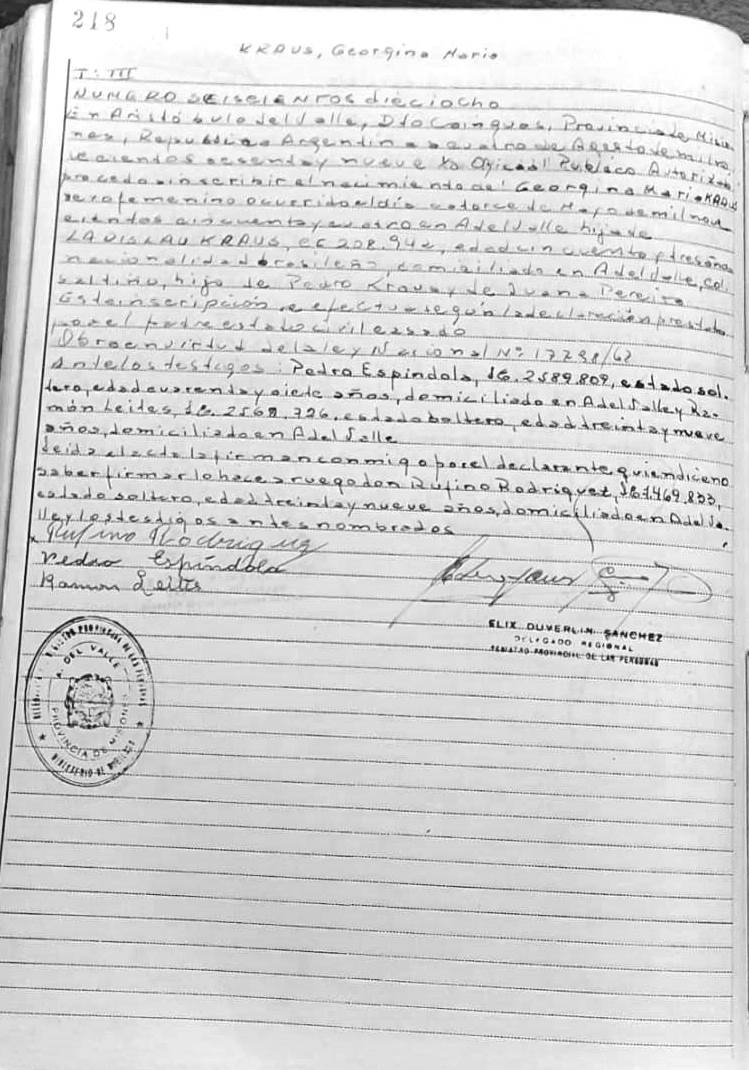 218
KRAUS, Georgina Maria
T: III
NUMERO SEISCIENTOS dieciocho
En Aristóbulo del Valle, Dto Cainguas, Provincia de Misio
nes, Republica Argentina a cuatro de Agosto de mil no
vecientos sesenta y nueve Yo Oficial Publico Autorizado
procedo a inscribir el nacimiento de: Georgina Maria KRAUS
sexo femenino ocurrido el día catorce de Mayo de mil nove
cientos cincuenta y cuatro en A del Valle hija de
LADISLAU KRAUS, CC 208.942, edad cincuenta y tres años,
nacionalidad brasileña, domiciliado en A del Valle, col.
saltiño, hijo de Pedro Kraus y de Juana Pereira
Esta inscripción se efectua según la declaración prestada
por el padre estado civil casado
Obro en virtud de la ley Nacional Nº: 17298/67
Ante los testigos: Pedro Espindola, 2.589.809, estado sol-
tero, edad cuarenta y siete años, domiciliado en A del Valle y Ra-
món Leites, 2.569.726, estado soltero, edad treinta y nueve
años, domiciliado en A del Valle
Leida el acta la firman conmigo por el declarante quien dice no
saber firmar lo hace a ruego don Rufino Rodriguez, 7.469.833,
estado soltero, edad treinta y nueve años, domiciliado en A del Va-
lle y los testigos antes nombrados
Rufino Rodriguez
Pedro Espíndola
Ramon Leites
ELIX DUVERLIN SANCHEZ
DELEGADO REGIONAL
REGISTRO PROVINCIAL DE LAS PERSONAS
REGISTRO PROVINCIAL DE LAS PERSONAS
A. DEL VALLE
PROVINCIA DE MISIONES
MINISTERIO DE